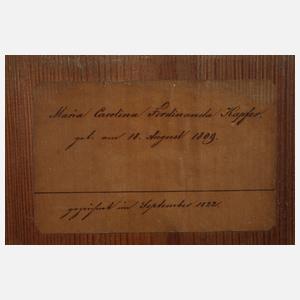 Maria Carolina Ferdinanda Kapfer.
geb. am 18. August 1809.
gezeichnet im September 1822.